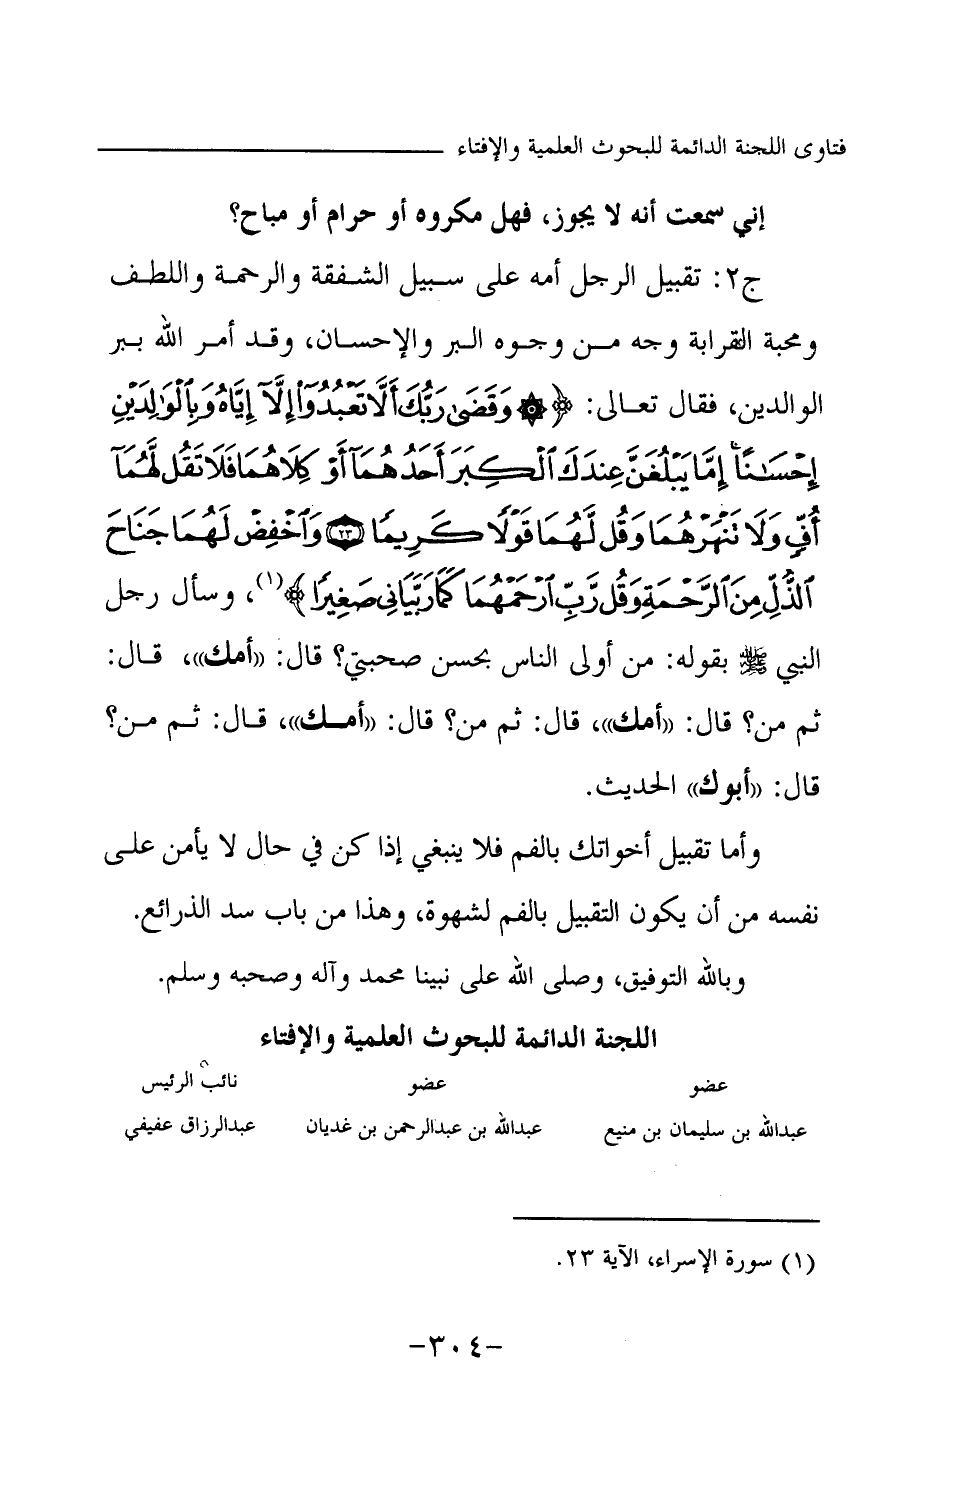 فتاوى اللجنة الدائمة للبحوث العلمية والإفتاء
إني سمعت أنه لا يجوز، فهل مكروه أو حرام أو مباح؟
ج٢: تقبيل الرجل أمه على سبيل الشفقة والرحمة واللطف
ومحبة القرابة وجه من وجوه البر والإحسان، وقد أمر الله ببر
الوالدين، فقال تعالى: ﴿۞ وَقَضَىٰ رَبُّكَ أَلَّا تَعْبُدُوٓا۟ إِلَّآ إِيَّاهُ وَبِٱلْوَٰلِدَيْنِ
إِحْسَـٰنًا ۚ إِمَّا يَبْلُغَنَّ عِندَكَ ٱلْكِبَرَ أَحَدُهُمَآ أَوْ كِلَاهُمَا فَلَا تَقُل لَّهُمَآ
أُفٍّ وَلَا تَنْهَرْهُمَا وَقُل لَّهُمَا قَوْلًا كَرِيمًا ﴿٢٣﴾ وَٱخْفِضْ لَهُمَا جَنَاحَ
ٱلذُّلِّ مِنَ ٱلرَّحْمَةِ وَقُل رَّبِّ ٱرْحَمْهُمَا كَمَا رَبَّيَانِى صَغِيرًا﴾(١)، وسأل رجل
النبي ﷺ بقوله: من أولى الناس بحسن صحبتي؟ قال: ((أمك))، قال:
ثم من؟ قال: ((أمك))، قال: ثم من؟ قال: ((أمك))، قال: ثم من؟
قال: ((أبوك)) الحديث.
وأما تقبيل أخواتك بالفم فلا ينبغي إذا كن في حال لا يأمن على
نفسه من أن يكون التقبيل بالفم لشهوة، وهذا من باب سد الذرائع.
وبالله التوفيق، وصلى الله على نبينا محمد وآله وصحبه وسلم.
اللجنة الدائمة للبحوث العلمية والإفتاء
عضو عضو نائب الرئيس
عبدالله بن سليمان بن منيع عبدالله بن عبدالرحمن بن غديان عبدالرزاق عفيفي
(١) سورة الإسراء، الآية ٢٣.
-٣٠٤-